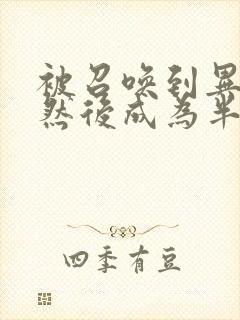 被召喚到異
然後成為半
四季有豆